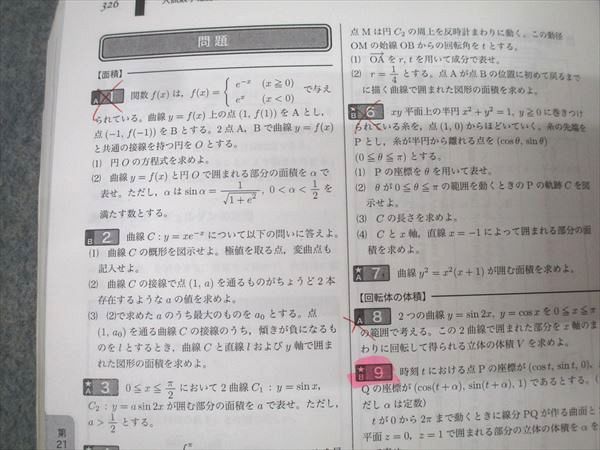 326
問題
【面積】
A 1 関数 f(x) は, f(x)={ e^{-x} (x≧0) で与え
e^{x} (x<0)
られている。曲線 y=f(x) 上の点 (1, f(1)) を A とし,
点 (-1, f(-1)) を B とする。2点 A, B で曲線 y=f(x)
と共通の接線を持つ円を O とする。
(1) 円 O の方程式を求めよ。
(2) 曲線 y=f(x) と円 O で囲まれる部分の面積を α で
表せ。ただし, α は sin α = 1/√(1+e²), 0<α<1/2 を
満たす数とする。
B 2 曲線 C : y=xe^{-x} について以下の問いに答えよ。
(1) 曲線 C の概形を図示せよ。極値を取る点, 変曲点も
記入せよ。
(2) 曲線 C の接線で点 (1, a) を通るものがちょうど2本
存在するような a の値を求めよ。
(3) (2)で求めた a のうち最大のものを a₀ とする。点
(1, a₀) を通る曲線 C の接線のうち, 傾きが負になるも
のを l とするとき, 曲線 C と直線 l および y 軸で囲ま
れた図形の面積を求めよ。
★A 3 0≦x≦π/2 において2曲線 C₁ : y=sin x,
C₂ : y=a sin 2x が囲む部分の面積を a で表せ。ただし,
a>1/2 とする。
第
21
点 M は円 C₂ の周上を反時計まわりに動く。この動径
OM の始線 OB からの回転角を t とする。
(1) OA を r, t を用いて成分で表せ。
(2) r=1/4 とする。点 A が点 B の位置に初めて戻るまで
に描く曲線で囲まれた図形の面積を求めよ。
★B 6 xy 平面上の半円 x²+y²=1, y≧0 に巻きつけ
られている糸を, 点 (1, 0) からほどいていく。糸の先端を
P とし, 糸が半円から離れる点を (cos θ, sin θ)
(0≦θ≦π) とする。
(1) P の座標を θ を用いて表せ。
(2) θ が 0≦θ≦π の範囲を動くときの P の軌跡 C を図
示せよ。
(3) C の長さを求めよ。
(4) C と x 軸, 直線 x=-1 によって囲まれる部分の面
積を求めよ。
★A 7 曲線 y²=x²(x+1) が囲む面積を求めよ。
【回転体の体積】
A 8 2つの曲線 y=sin 2x, y=cos x を 0≦x≦
の範囲で考える。この2曲線で囲まれた部分を x 軸のま
わりに回転して得られる立体の体積 V を求めよ。
★B 9 時刻 t における点 P の座標が (cos t, sin t, 0),
Q の座標が (cos(t+α), sin(t+α), 1) であるとする。(
だし α は定数)
t が 0 から 2π まで動くときに線分 PQ が作る曲面と
平面 z=0, z=1 で囲まれる部分の立体の体積を α